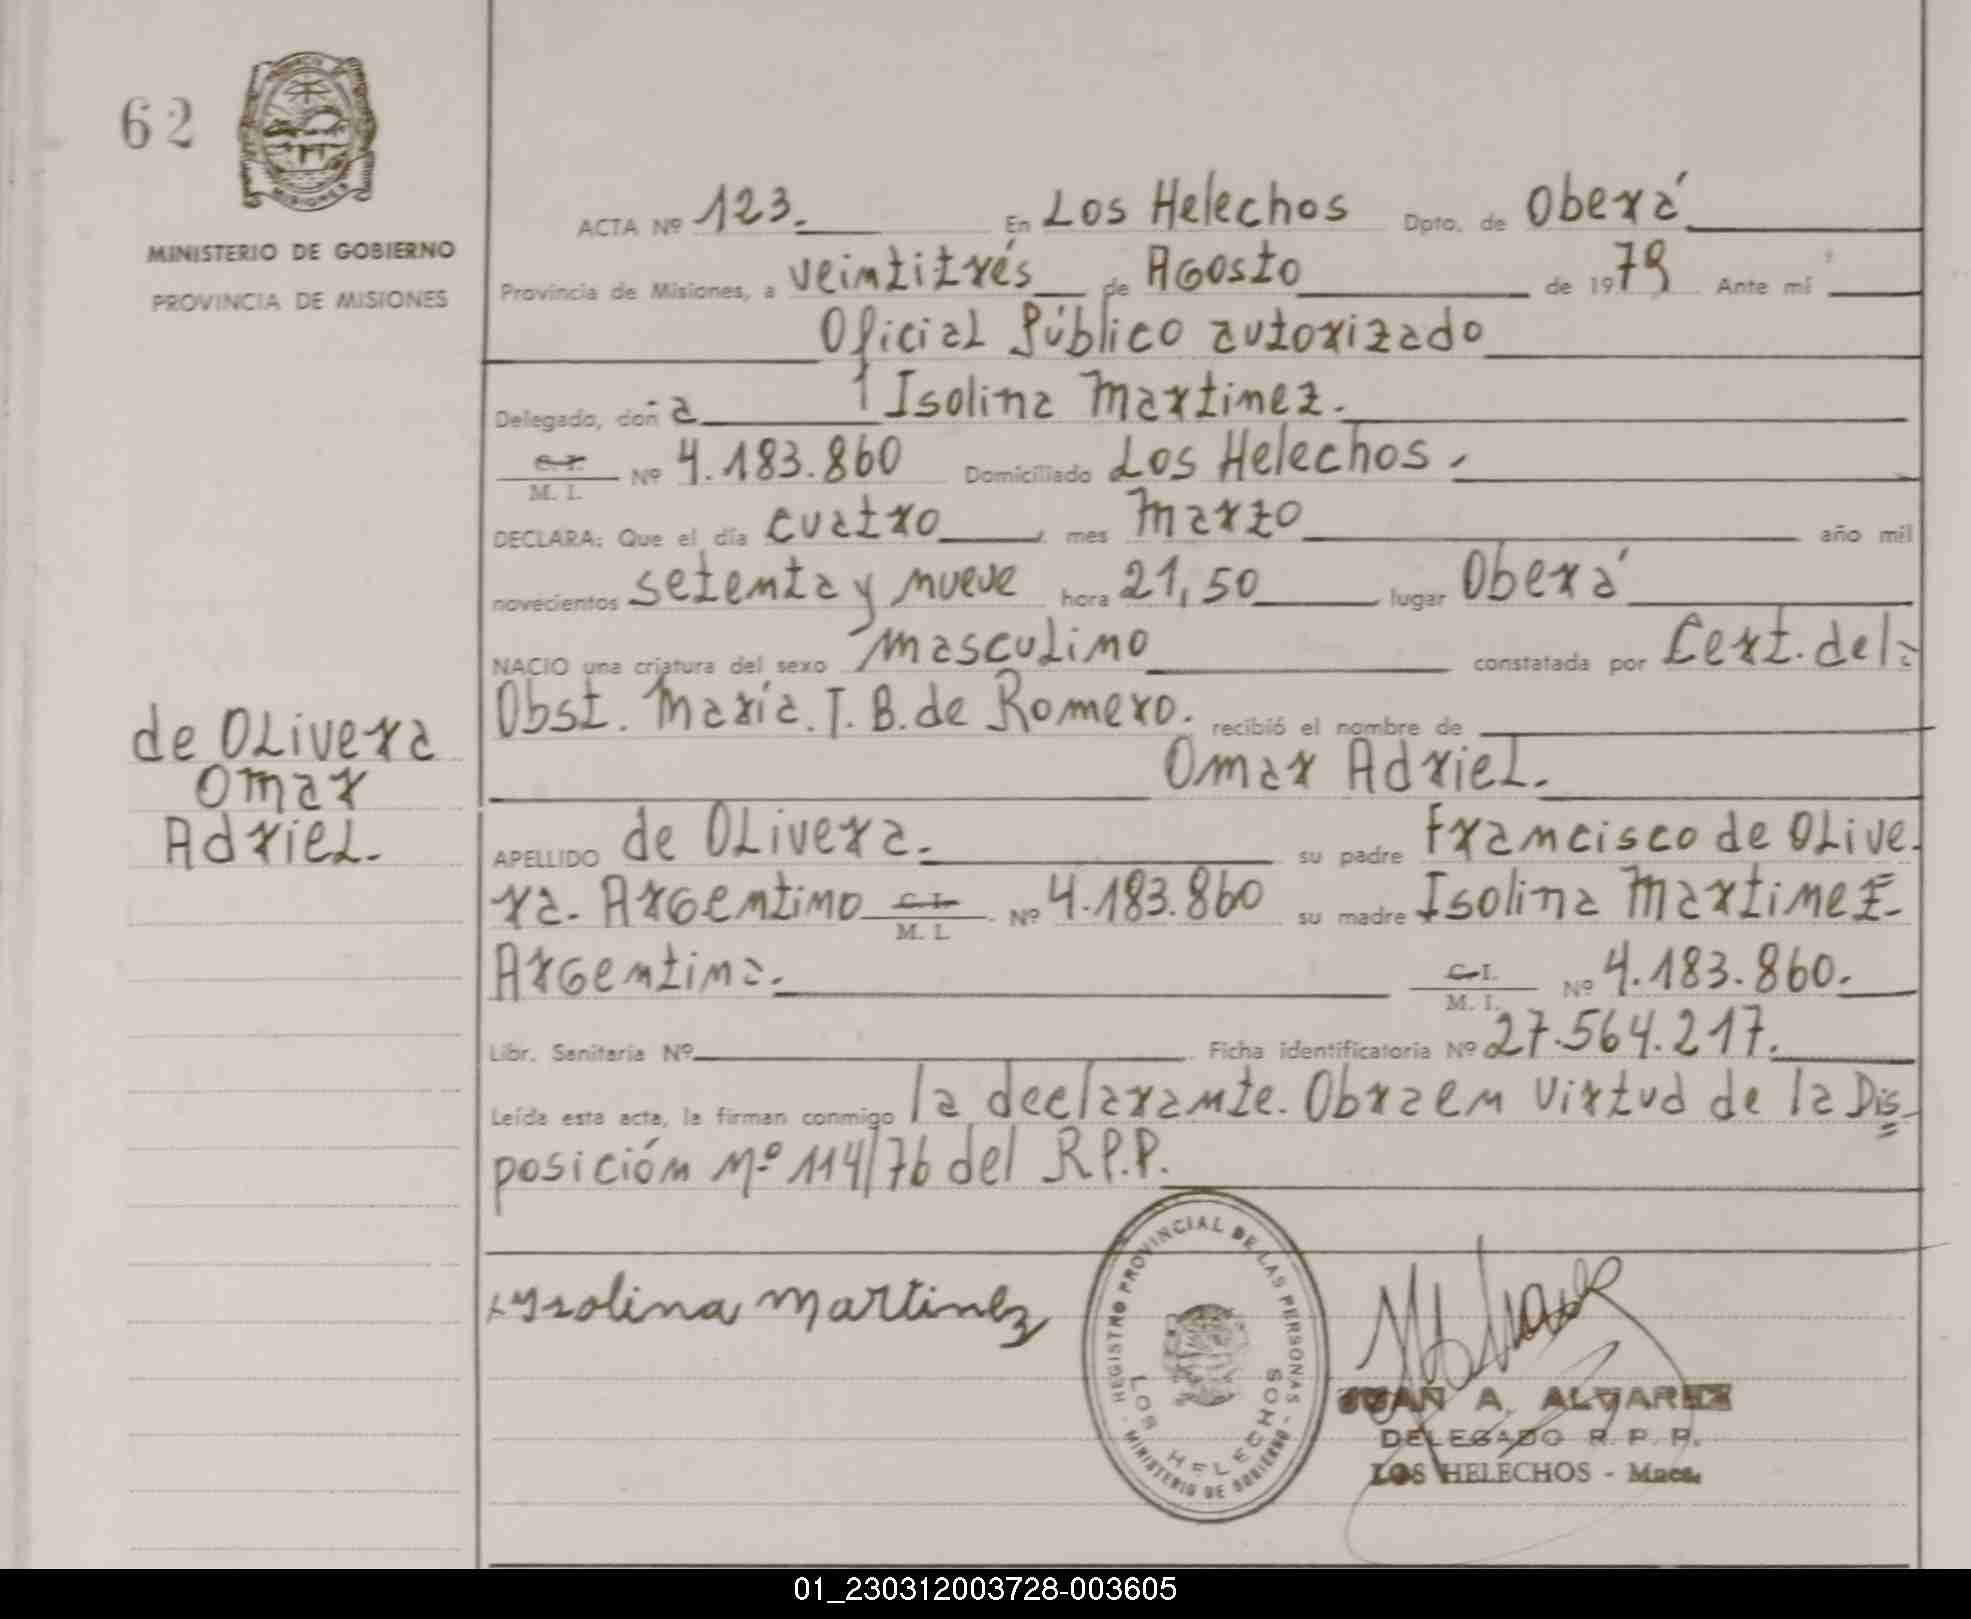 62
MISIONES
MINISTERIO DE GOBIERNO
PROVINCIA DE MISIONES
de Olivera
Omar
Adriel.
ACTA Nº 123. En Los Helechos Dpto. de Oberá
Provincia de Misiones, a veintitrés de Agosto de 1979 Ante mí
Oficial Público autorizado
Delegado, doña Isolina Martinez.
C. I. M. I. Nº 4.183.860 Domiciliado Los Helechos.
DECLARA: Que el día cuatro mes Marzo año mil
novecientos setenta y nueve hora 21,50 lugar Oberá
NACIO una criatura del sexo masculino constatada por Cert. de la
Obst. María. T. B. de Romero. recibió el nombre de
Omar Adriel.
APELLIDO de Olivera. su padre Francisco de Olive-
ra. Argentino C. I. M. I. Nº 4.183.860 su madre Isolina Martinez-
Argentina. C. I. M. I. Nº 4.183.860.
Libr. Sanitaria Nº Ficha identificatoria Nº 27.564.217.
Leída esta acta, la firman conmigo la declarante. Obra en virtud de la Dis-
posición Nº 114/76 del R.P.P.
Isolina Martinez
REGISTRO PROVINCIAL DE LAS PERSONAS
LOS HELECHOS
MINISTERIO DE GOBIERNO
JUAN A. ALVAREZ
DELEGADO R. P. P.
LOS HELECHOS - Mnes.
01_230312003728-003605